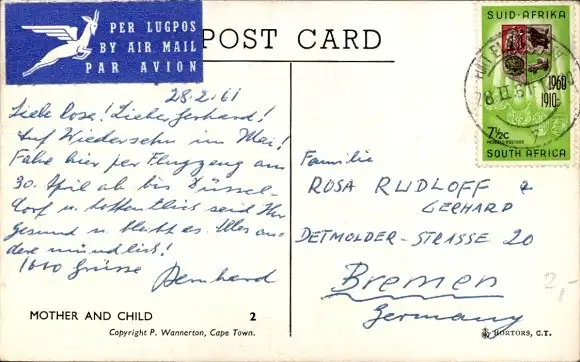 PER LUGPOS
BY AIR MAIL
PAR AVION
POST CARD
SUID-AFRIKA
1960
1910
7½c
SOUTH AFRICA
28.2.61
Liebe Rosa! Lieber Gerhard!
Auf Wiedersehn im Mai!
Fahre hier per Flugzeug am
30. April ab bis Düssel-
dorf u. hoffentlich seid Ihr
gesund u. bleibt es. Alles an-
dere mündlich!
1000 Grüsse Bernhard
Familie
ROSA RUDLOFF &
GERHARD
DETMOLDER-STRASSE 20
Bremen
Germany
2,-
MOTHER AND CHILD 2
Copyright P. Wannerton, Cape Town.
HORTORS, C.T.